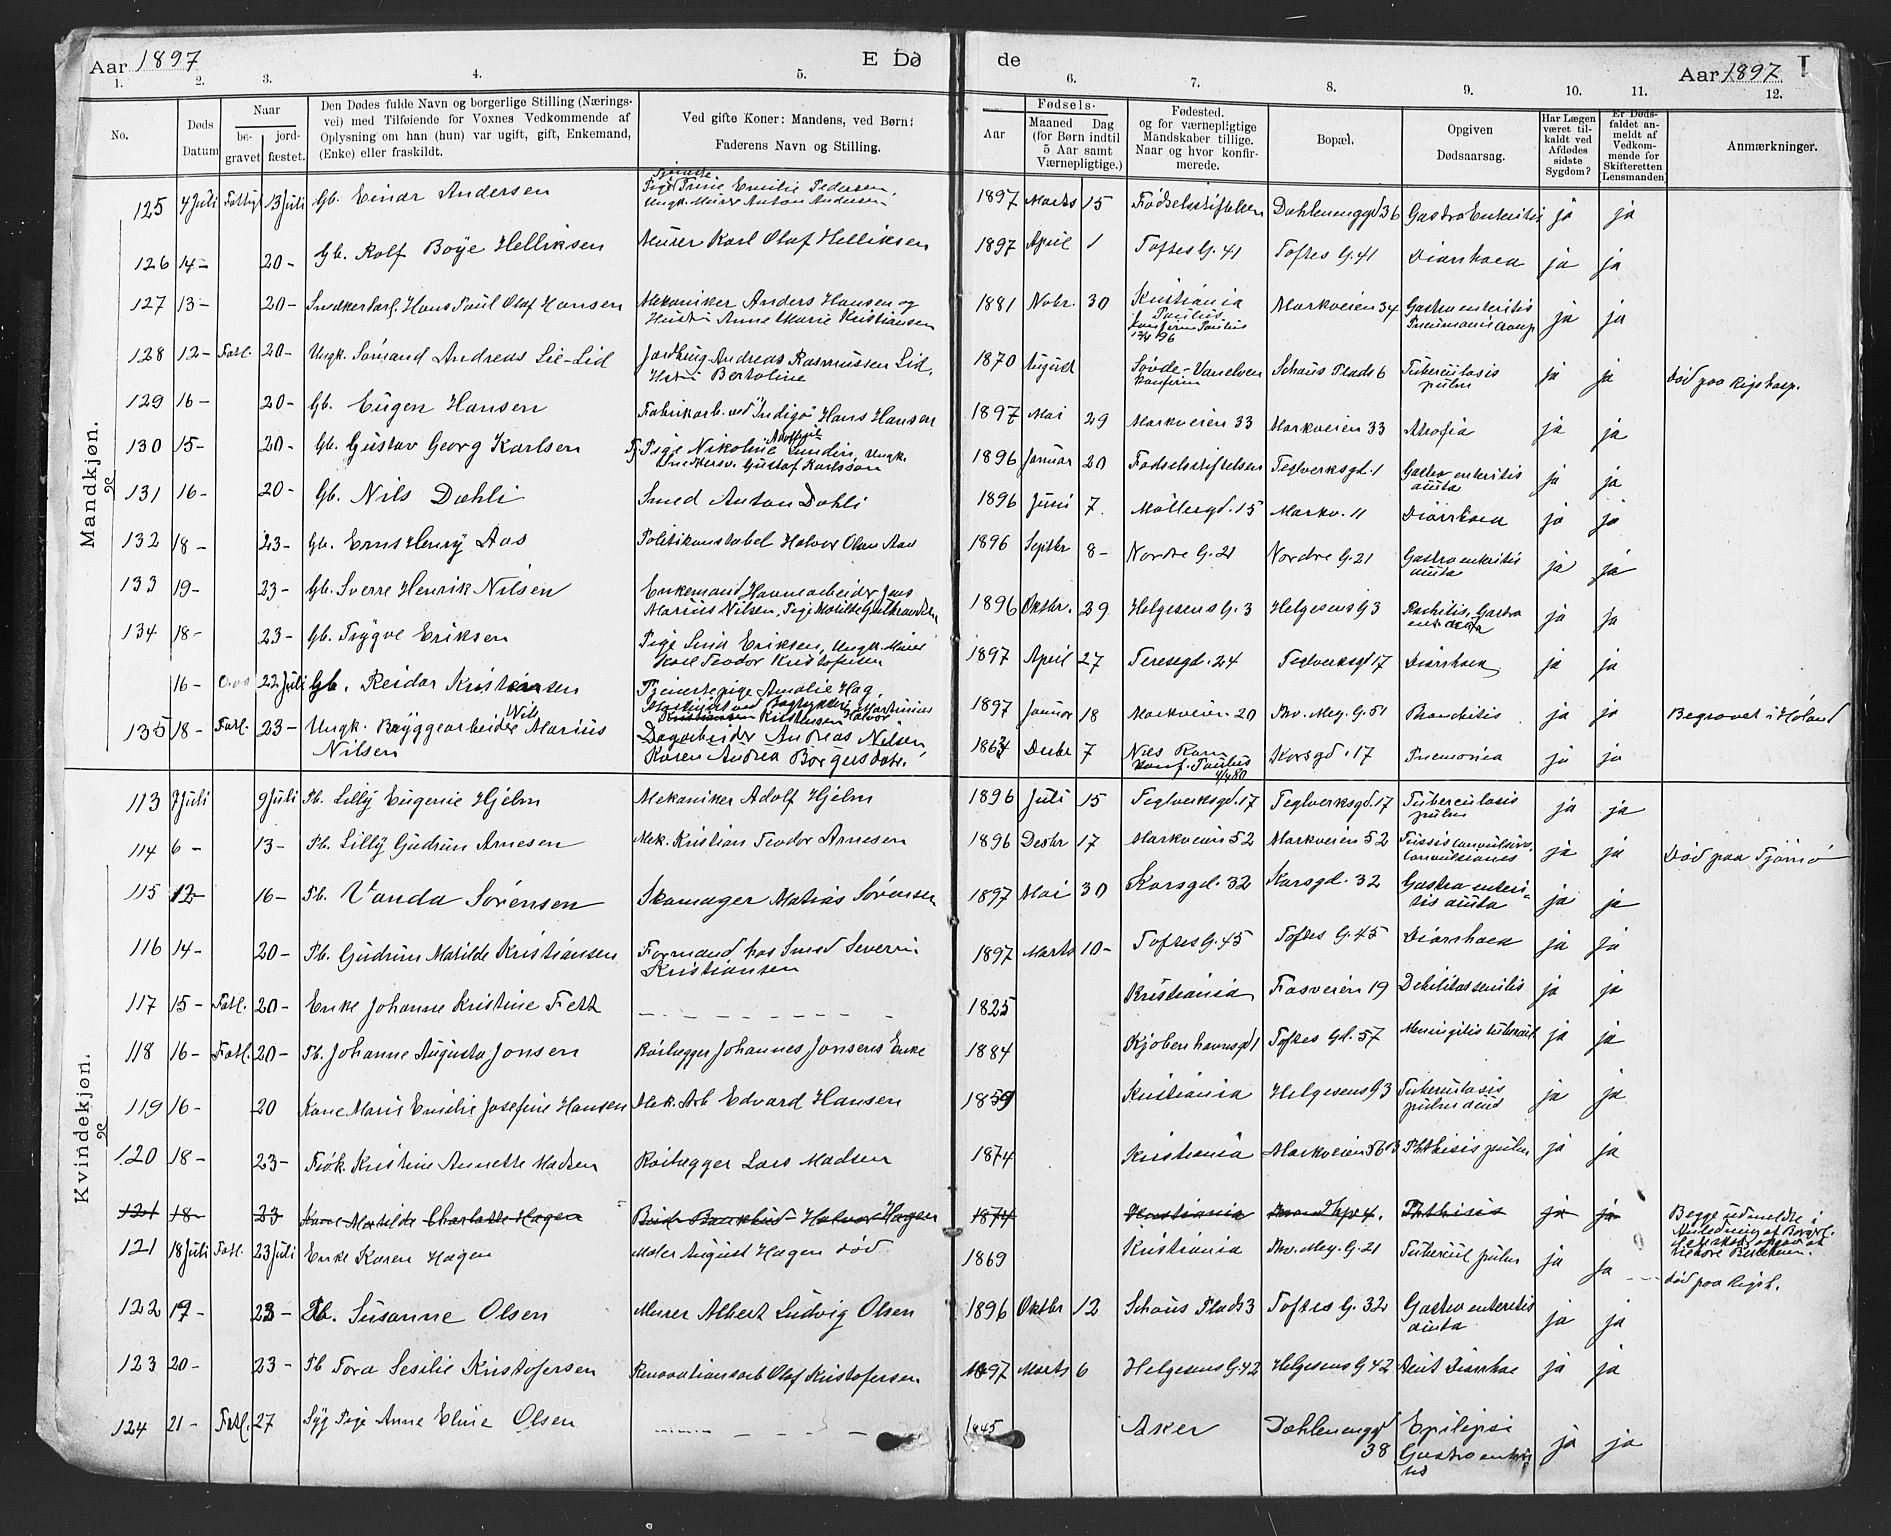 Aar 1897
E Dø
de
I
Aar 1897
1. 2. 3. 4. 5. 6. 7. 8. 9. 10. 11. 12.
No.
Døds Datum
Naar
be-gravet. jord-fæstet.
Den Dødes fulde Navn og borgerlige Stilling (Nærings-
vei) med Tilføiende for Voxnes Vedkommende af
Oplysning om han (hun) var ugift, gift, Enkemand,
(Enke) eller fraskildt.
Ved gifte Koner: Mandens, ved Børn:
Faderens Navn og Stilling.
Fødsels-
Aar
Maaned Dag
(for Børn indtil
5 Aar samt
Værnepligtige.)
Fødested.
og for værnepligtige
Mandskaber tillige.
Naar og hvor konfir-
merede.
Bopæl.
Opgiven
Dødsaarsag.
Har Lægen
været til-
kaldt ved
Afdødes
sidste
Sygdom?
Er Døds-
faldet an-
meldt af
Vedkom-
mende for
Skifteretten
Lensmanden
Anmærkninger.
Mandkjøn.
125 4 Juli 13 Juli Gb. Einar Andersen Pige Trine Emilie Pedersen, 1897 Marts 15 Fødselsstiftelsen Dahlenenggd 36 Gastro Enteritis ja ja
Ungk. Murer Anton Andersen
126 14 - 20 - Gb. Rolf Boye Helliksen Murer Karl Olaf Helliksen 1897 April 1 Toftes G. 41 Toftes G. 41 Diarrhoea ja ja
127 13 - 20 - Snedkerlærl. Hans Paul Olaf Hansen Mekaniker Anders Hansen og 1881 Novbr. 30 Kristiania Markveien 34 Gastro enteritis ja ja
Hustru Anne Marie Kristiansen Paulus
konfirm Paulus
128 12 - Fatl. 20 - Ungk. Sømand Andreas Lie-Lid Jordbrug. Andreas Rasmussen Lid, 1870 August Søvde-Vanelven Schous Plads 6 Tuberculosis ja ja Død paa Rigshosp.
Bertoline konfirm pulm
129 16 - 20 - Gb. Eugen Hansen Fabrikarb. ved "Indigo" Hans Hansen 1897 Mai 29 Markveien 33 Markveien 33 Atrofia ja ja
130 15 - 20 - Gb. Gustav Georg Karlsen Pige Nikoline Lundin, Ungk. 1896 Januar 20 Fødselsstiftelsen Teglverksgd. 1 Gastro enteritis ja ja
Snedkersv. Gustaf Karlsson acuta
131 16 - 20 - Gb. Nils Dahli Smed Anton Dahli 1896 Juni 7. Møllergd. 15 Markv. 11 Diarrhoea ja ja
132 18 - 23 - Gb. Ernst Henry Aas Politikonstabel Halvor Olsen Aas 1896 Septbr 8 - Nordre G. 21 Nordre G. 21 Gastro enteritis ja ja
acuta
133 19 - 23 - Gb. Sverre Henrik Nilsen Enkemand Havnearbeider Jens 1896 Oktbr. 29 Helgesens G. 3 Helgesens G 3 Rachitis, Gastro ja ja
Marius Nilsen, Pige Matilde
134 18 - 23 - Gb. Trygve Eriksen Pige Lina Eriksen, Ungk. Maler 1897 April 27 Teresegd. 24 Teglverksgd 17 Diarrhoea ja ja
Karl Teodor Kristofersen
16 - 22 Juli Gb. Reidar Kristiansen Tjenestepige Amalie Hag, 1897 Januar 18 Markveien 20 Thv. Mey. G. 51 Bronchitis ja ja Begravet i Høland
135 18 - Fatl. 23 - Ungk. Byggearbeider Nils Marius Dagarbeider Andreas Nilsen, 1864 Decbr 7 Nils Korsgd. 17 Pnemonia ja ja
Nilsen Karen Andrea Børgersdatr. Konf. Paulus
4/4 80
Kvindekjøn.
113 7 Juli 9 Juli Pb. Lilly Eugenie Hjelm Mekaniker Adolf Hjelm 1896 Juli 15 Teglverksgd. 17 Teglverksgd. 17 Tuberculosis ja ja
pulm
114 6 - 13 - Pb. Lilly Gudrun Arnesen Mek. Kristian Teodor Arnesen 1896 Decbr 17 Markveien 52 Markveien 52 Tussis convulsiva, ja ja Død paa Tjømø
Convulsiones
115 12 16 - Pb. Vanda Sørensen Skomager Matias Sørensen 1897 Mai 30 Korsgd. 32 Korsgd. 32 Gastro enteri- ja ja
tis acuta
116 14 - 20 - Pb. Gudrun Matilde Kristiansen Formand hos Smed Severin 1897 Marts 10 - Toftes G. 45 Toftes G. 45 Diarrhoea ja ja
Kristiansen
117 15 - Fatl. 20 - Enke Johanne Kristine Fett 1825 Kristiania Fossveien 19 Debilitas senilis ja ja
118 16 - Fatl. 20 - Pb. Johanne Augusta Jonsen Rørlægger Johannes Jonsens Enke 1884 Kjøbenhavnsgd 1 Toftes Gd. 57 Meningitis tubercul ja ja
119 16 - 20 Kone Marie Emilie Josefine Hansen Mek. Arb Edvard Hansen 1859 Kristiania Helgesens G 3 Tuberculosis ja ja
pulm
120 18 - 23 - Frøk. Kristine Annette Madsen Rørlægger Lars Madsen 1874 Kristiania Markveien 56 Phthisis pulm ja ja
121 18 - 23 Kone Matilde Charlotte Hagen Halvor Hagen 1874 Kristiania Phthisis ja ja Begge udmeldte i
Anledning af
121 18 Juli Fatl. 23 Juli Enke Karen Hagen Maler August Hagen død 1869 Kristiania Thv. Mey. G. 21 Tubercul pulm ja ja død paa Rigsh.
122 19 - 23 - Pb. Susanne Olsen Murer Albert Ludvig Olsen 1896 Oktbr 12 Schous Plads 3 Toftes G. 32 Gastro enteritis ja ja
acuta
123 20 - 23 - Pb Tora Sesilie Kristofersen Renovationsarb Olaf Kristofersen 1897 Marts 6 Helgesens G. 42 Helgesens G 42 Acut Diarrhoe ja ja
124 21 - Fatl. 27 Syg Pige Anne Eline Olsen 1845 Aker Dæhlenenggd Epilepsi ja ja
38 Gastro enteri
tis